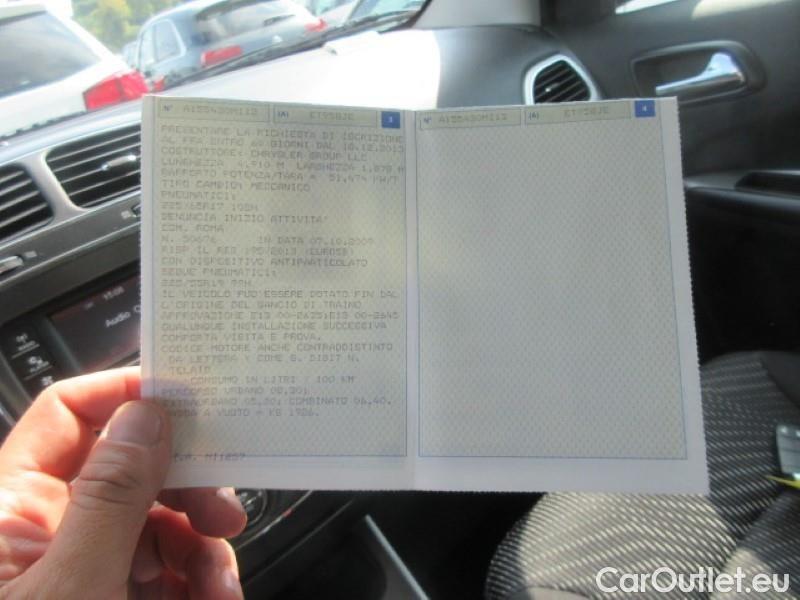 N° A155430MI13 (A) ET958JE 3
PRESENTARE LA RICHIESTA DI ISCRIZIONE
AL PRA ENTRO 60 GIORNI DAL 18.12.2013
COSTRUTTORE: CHRYSLER GROUP LLC
LUNGHEZZA 4,910 M LARGHEZZA 1,878 M
RAPPORTO POTENZA/TARA = 51,474 KW/T
TIPO CAMBIO: MECCANICO
PNEUMATICI:
225/65R17 102H
DENUNCIA INIZIO ATTIVITA'
COM. ROMA
N. 50676 IN DATA 07.10.2009
RISP IL REG 195/2013 (EURO5B)
CON DISPOSITIVO ANTIPARTICOLATO
SEGUE PNEUMATICI:
225/55R19 99H
IL VEICOLO PUO'ESSERE DOTATO FIN DAL
L'ORIGINE DEL GANCIO DI TRAINO
APPROVAZIONE E13 00-2625;E13 00-2645
QUALUNQUE INSTALLAZIONE SUCCESSIVA
COMPORTA VISITA E PROVA.
CODICE MOTORE ANCHE CONTRADDISTINTO
DA LETTERA Y COME 8. DIGIT N.
TELAIO
CONSUMO IN LITRI / 100 KM
PERCORSO URBANO 08,30;
EXTRAURBANO 05,30; COMBINATO 06,40.
MASSA A VUOTO = KG 1926.
N° A155430MI13 (A) ET958JE 4
15:08
Audio
CarOutlet.eu